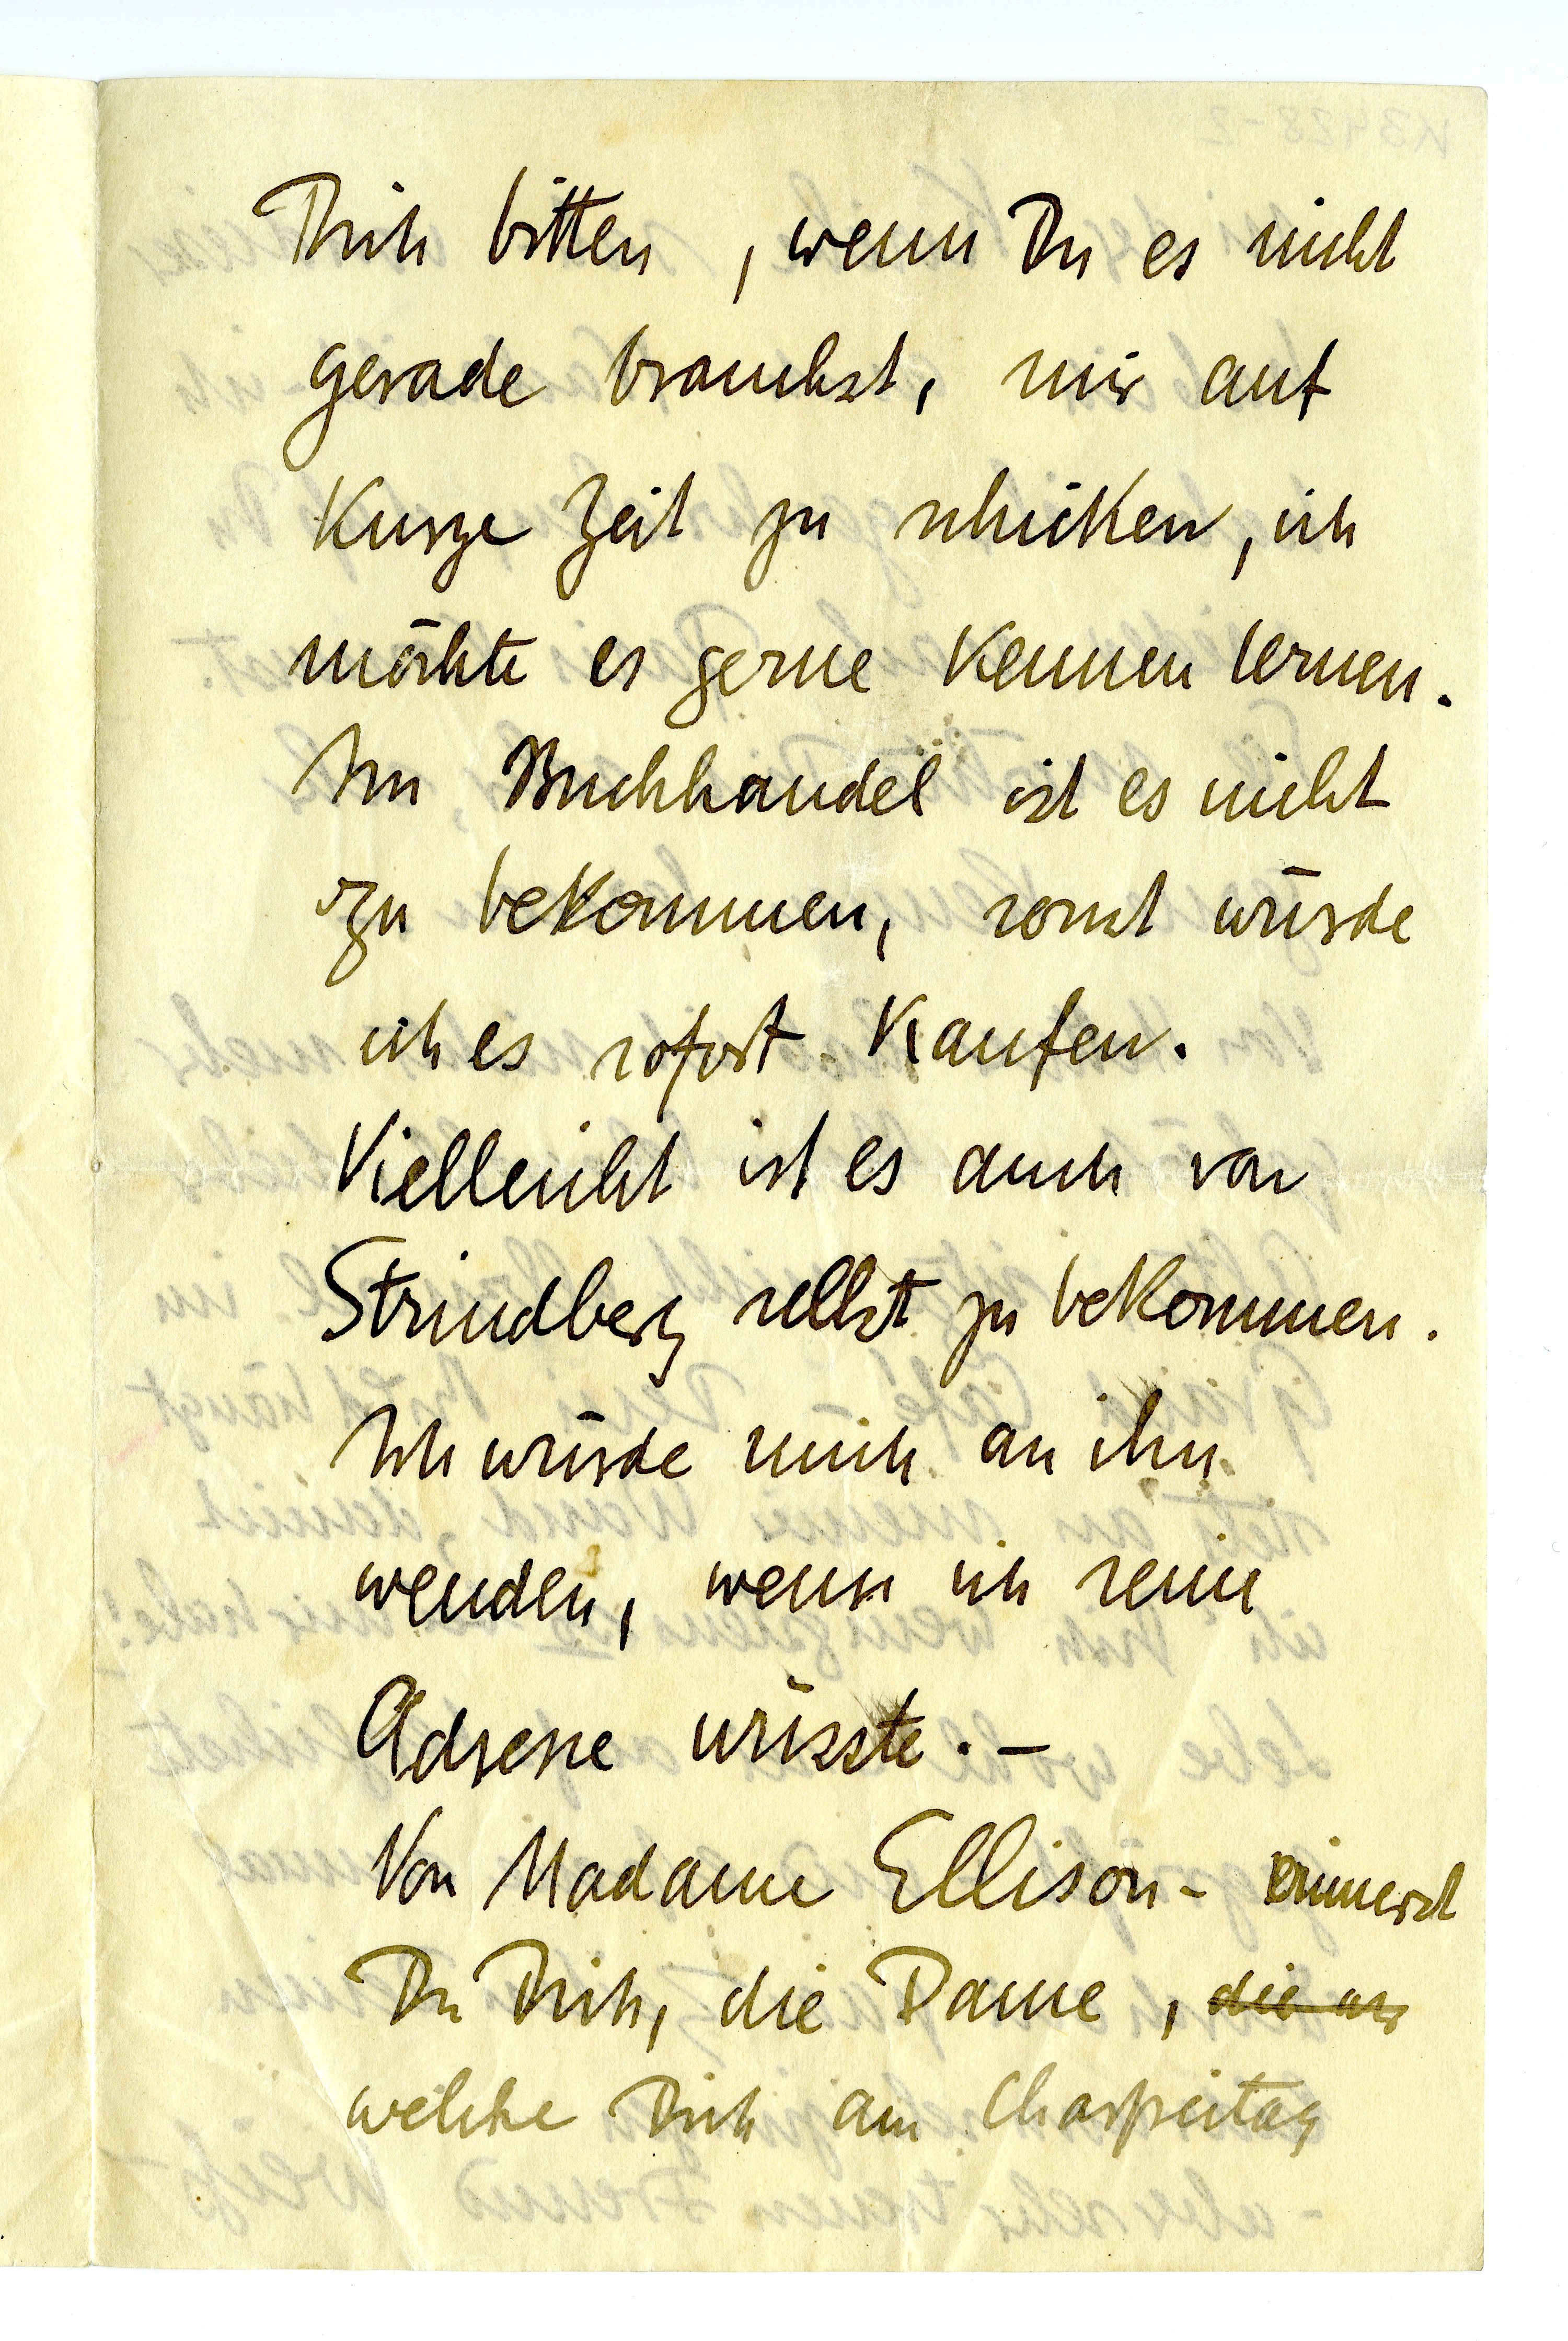 Dich bitten, wenn Du es nicht
gerade brauchst, mir auf
Kurze Zeit zu schicken, ich
möchte es gerne Kennen lernen.
Im Buchhandel ist es nicht
zu bekommen, sonst würde
ich es sofort Kaufen.
Vielleicht ist es auch von
Strindberg selbst zu bekommen.
Ich würde mich an ihn
wenden, wenn ich seine
Adresse wüsste. –
Von Madame Ellison – erinnerst
Du Dich, die Dame, die
welche Dich am Charfreitag